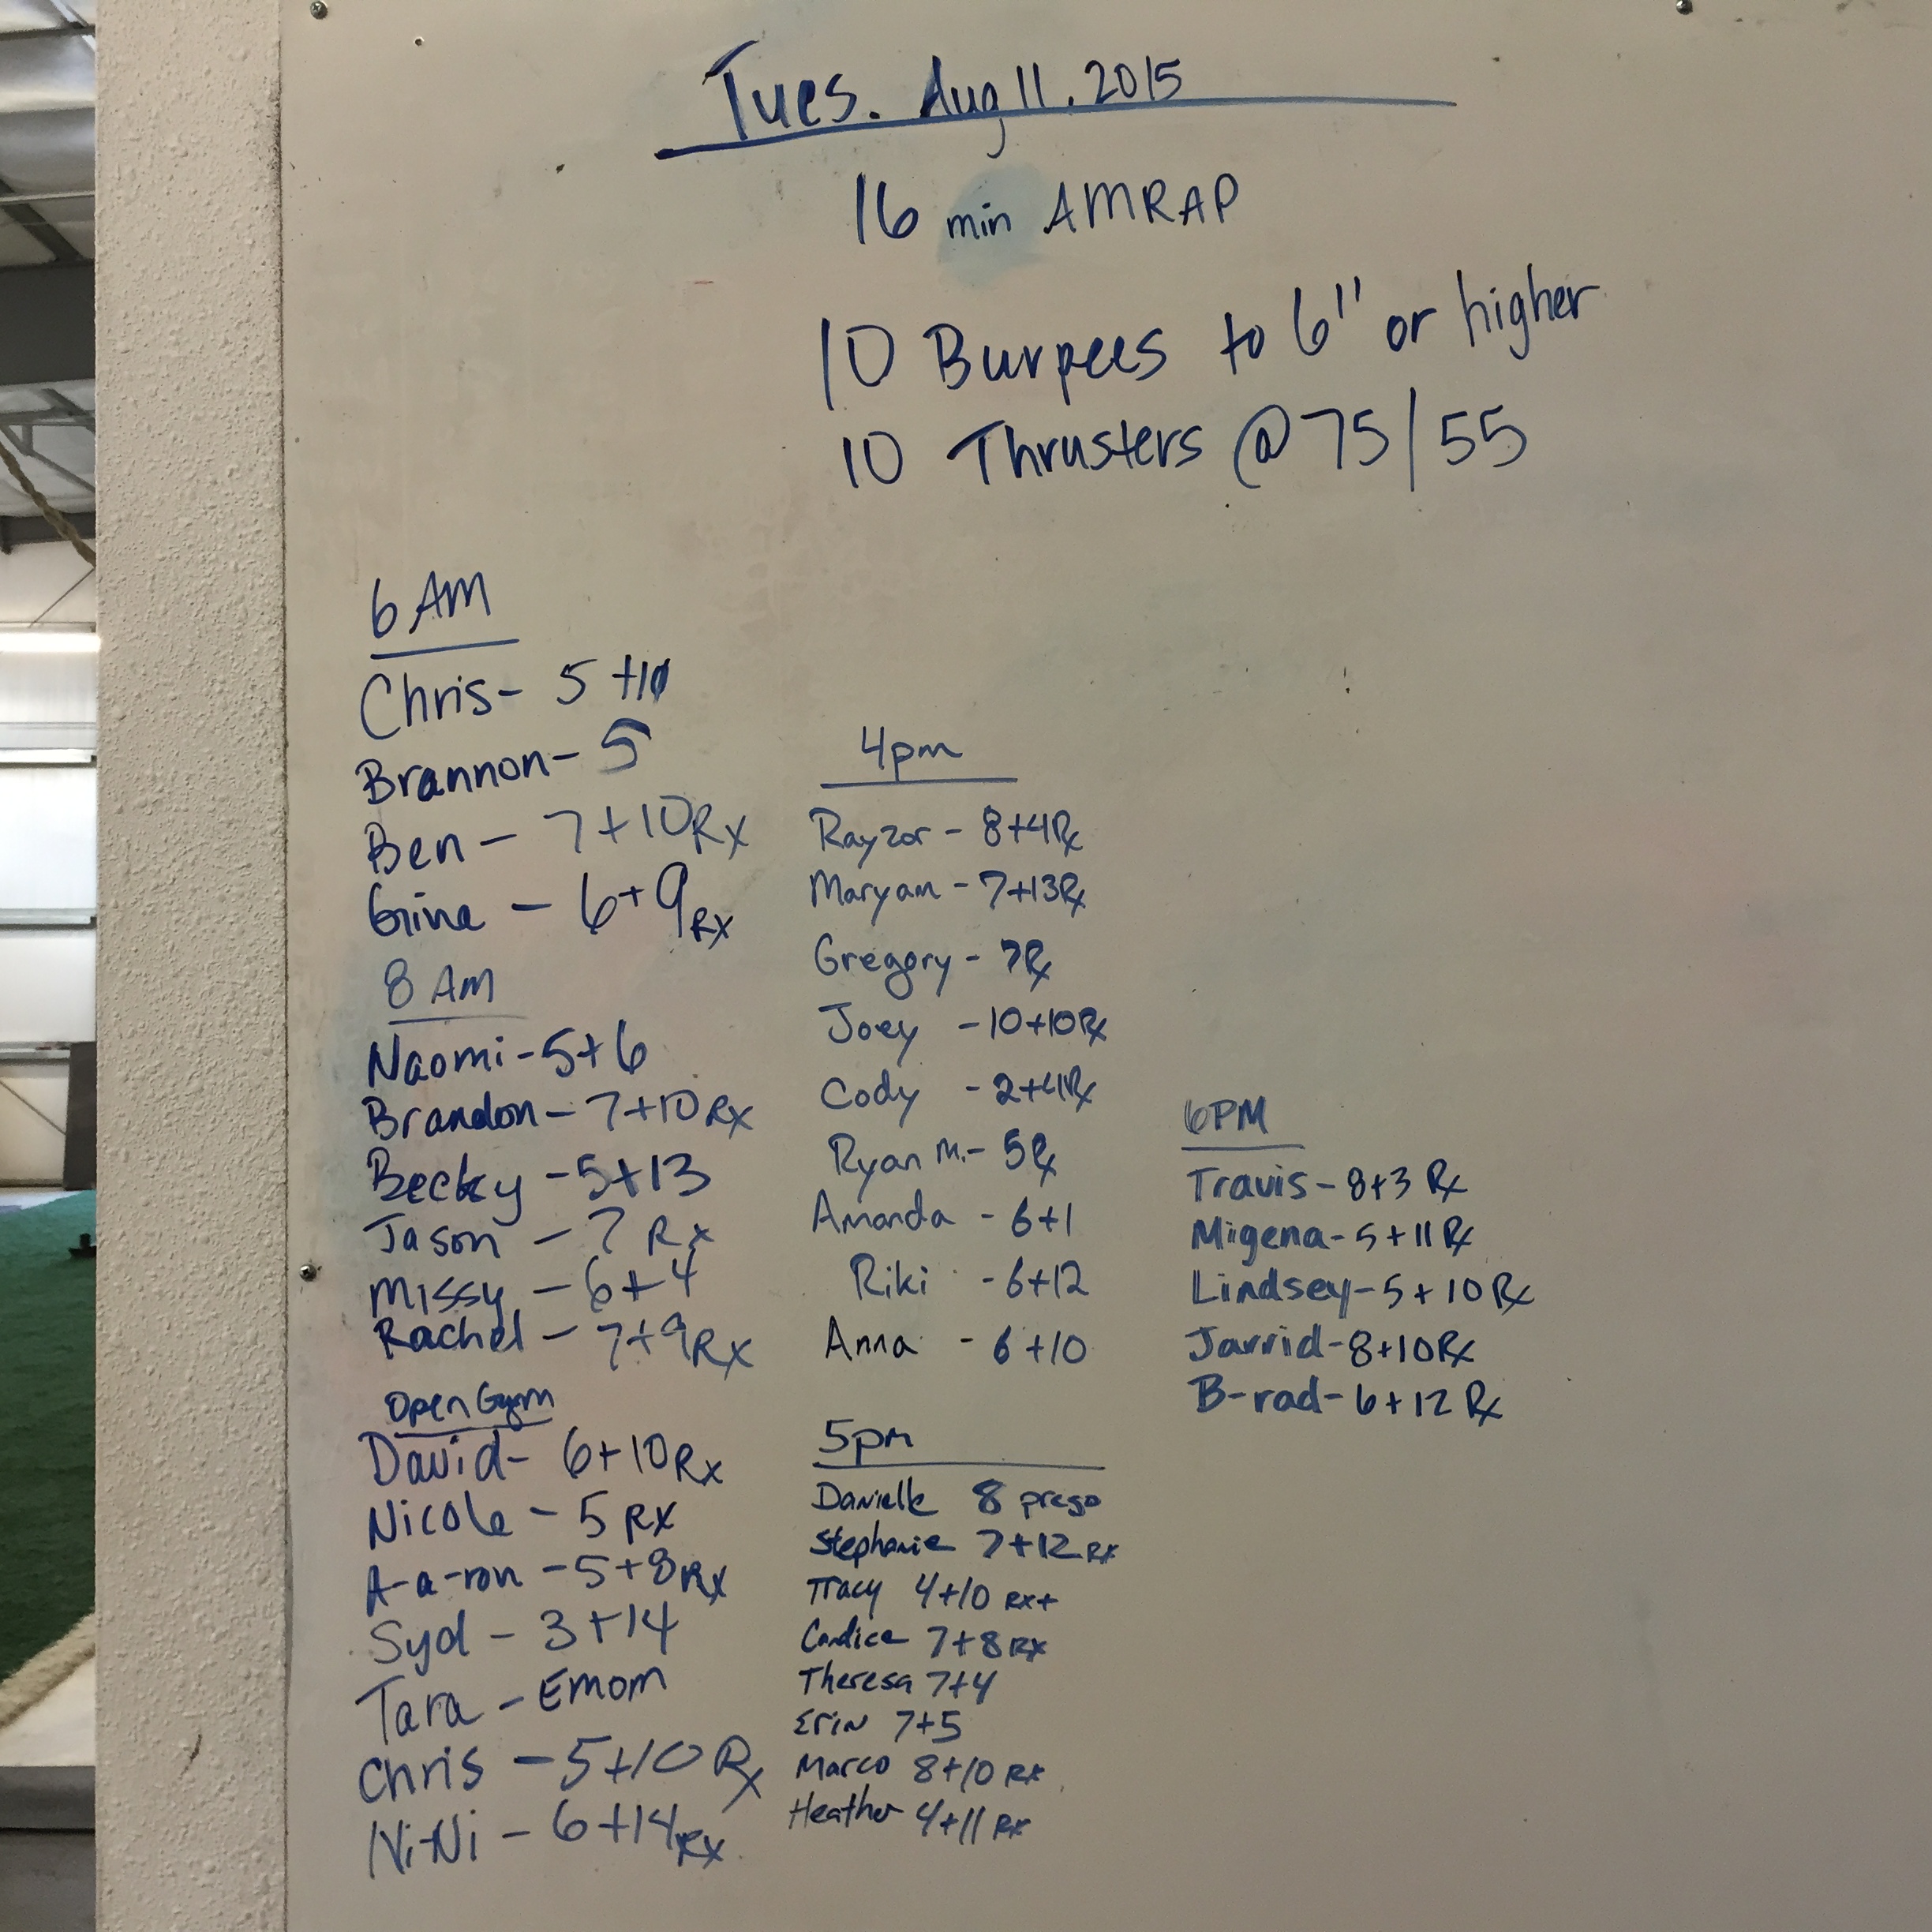 Tues. Aug 11. 2015
16 min AMRAP
10 Burpees to 6" or higher
10 Thrusters @ 75/55
6 AM
Chris- 5 +10
Brannon- 5
Ben - 7+10 Rx
Gina - 6+9 Rx
8 AM
Naomi - 5+6
Brandon - 7+10 Rx
Becky - 5+13
Jason - 7 Rx
Missy - 6+4
Rachel - 7+9 Rx
Open Gym
David- 6+10 Rx
Nicole - 5 Rx
A-a-ron - 5+8 Rx
Syd - 3+14
Tara - Emom
Chris - 5+10 Rx
Ni-Ni - 6+14 Rx
4pm
Rayzor - 8+4 Rx
Maryam - 7+13 Rx
Gregory - 7 Rx
Joey - 10+10 Rx
Cody - 2+4 Rx
Ryan M. - 5 Rx
Amanda - 6+1
Riki - 6+12
Anna - 6+10
5pm
Danielle 8 prego
Stephanie 7+12 Rx
Tracy 4+10 Rx+
Candice 7+8 Rx
Theresa 7+4
Erin 7+5
Marco 8+10 Rx
Heather 4+11 Rx
6PM
Travis - 8+3 Rx
Migena - 5+11 Rx
Lindsey - 5+10 Rx
Jarrid - 8+10 Rx
B-rad - 6+12 Rx